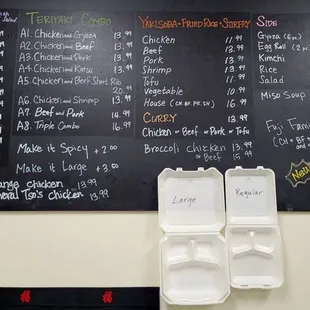 TERIYAKI COMBO
A1. Chicken and Gyoza 13.99
A2. Chicken and Beef 13.99
A3. Chicken and Pork 13.99
A4. Chicken and Katsu 13.99
A5. Chicken and Beef Short Rib
20.99
A6. Chicken and Shrimp 13.99
A7. Beef and Pork 14.99
A8. Triple Combo 16.99
Make it Spicy +2.00
Make it Large +3.50
chicken 13.99
Tso's chicken 13.99
YAKISOBA-FRIED RICE-STIRFRY
Chicken 11.99
Beef 13.99
Pork 13.99
Shrimp 13.99
Tofu 11.99
Vegetable 10.99
House (CH. BF. PK. SH) 16.99
CURRY 13.99
Chicken or Beef or Pork or Tofu
Broccoli chicken 13.99
or Beef 15.99
SIDE
Gyoza
Egg Roll
Kimchi
Rice
Salad
Miso Soup
Fuji
Large
Regular
福
福